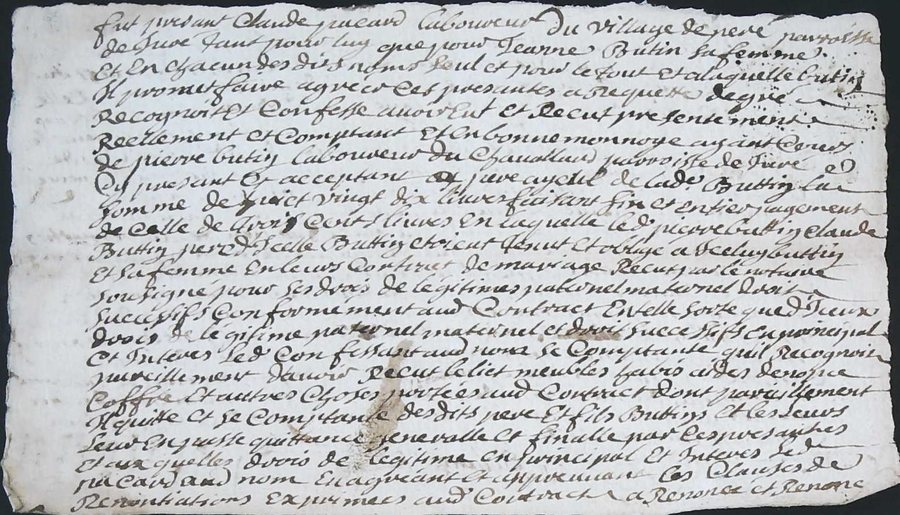 fut presant Claude pacard laboureur du village de peré parroisse
de Jure tant pour luy que pour Jeanne Butin sa femme
Et En chacun des dis noms seul et pour le tout Et a laquelle butin
Il promet faire agreer Ces presantes a Requette de gré
Recognoit Et Confesse avoir Eu et Recut presentement
Reellement et Comptant Et En bonne monnoye ayant Cours
de pierre butin laboureur du parroisse de Juré
Cy presant Et acceptant pere ayeul de lade Buttin La
somme de vingt dix livres faisant fin et entier payement
de Celle de trois Cents livres En laquelle led pierre buttin Claude
Buttin pere d Icelle Buttin etoient tenut et oblige a Iceluy buttin
Et sa femme En leurs Contract de mariage Recut par le notaire
sousigné pour ses drois de legitimes paternel maternel droit
successifs Conformement aud Contract En telle sorte que d Iceux
drois de legitime paternel maternel et droit successifs En principal
et Interes led Confessant aud nom se Comptante quil Recognoit
pareillement d avoir Recut le lict meubles habis ardes denope
Coffre et autres Choses portées aud Contract dont pareillement
Il quitte et se Comptante des dits pere Et fils Butins et les leurs
leur En passe quittance generalle et finalle par Ces presantes
Et aux quelles drois de legitime En principal Et Interes led
pacard aud nom En agreant et approuvant les Clauses de
Renontiations Exprimees aud Contract a Renoncé et Renonce